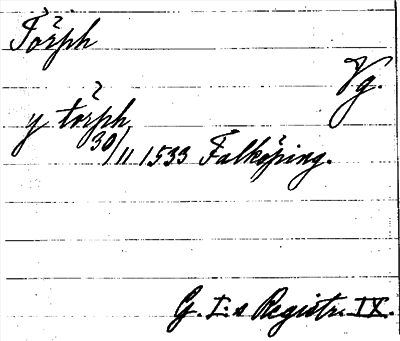 Törph
Vg.
y törph
30/11 1533 Falköping.
G. I:s Registr. IX.